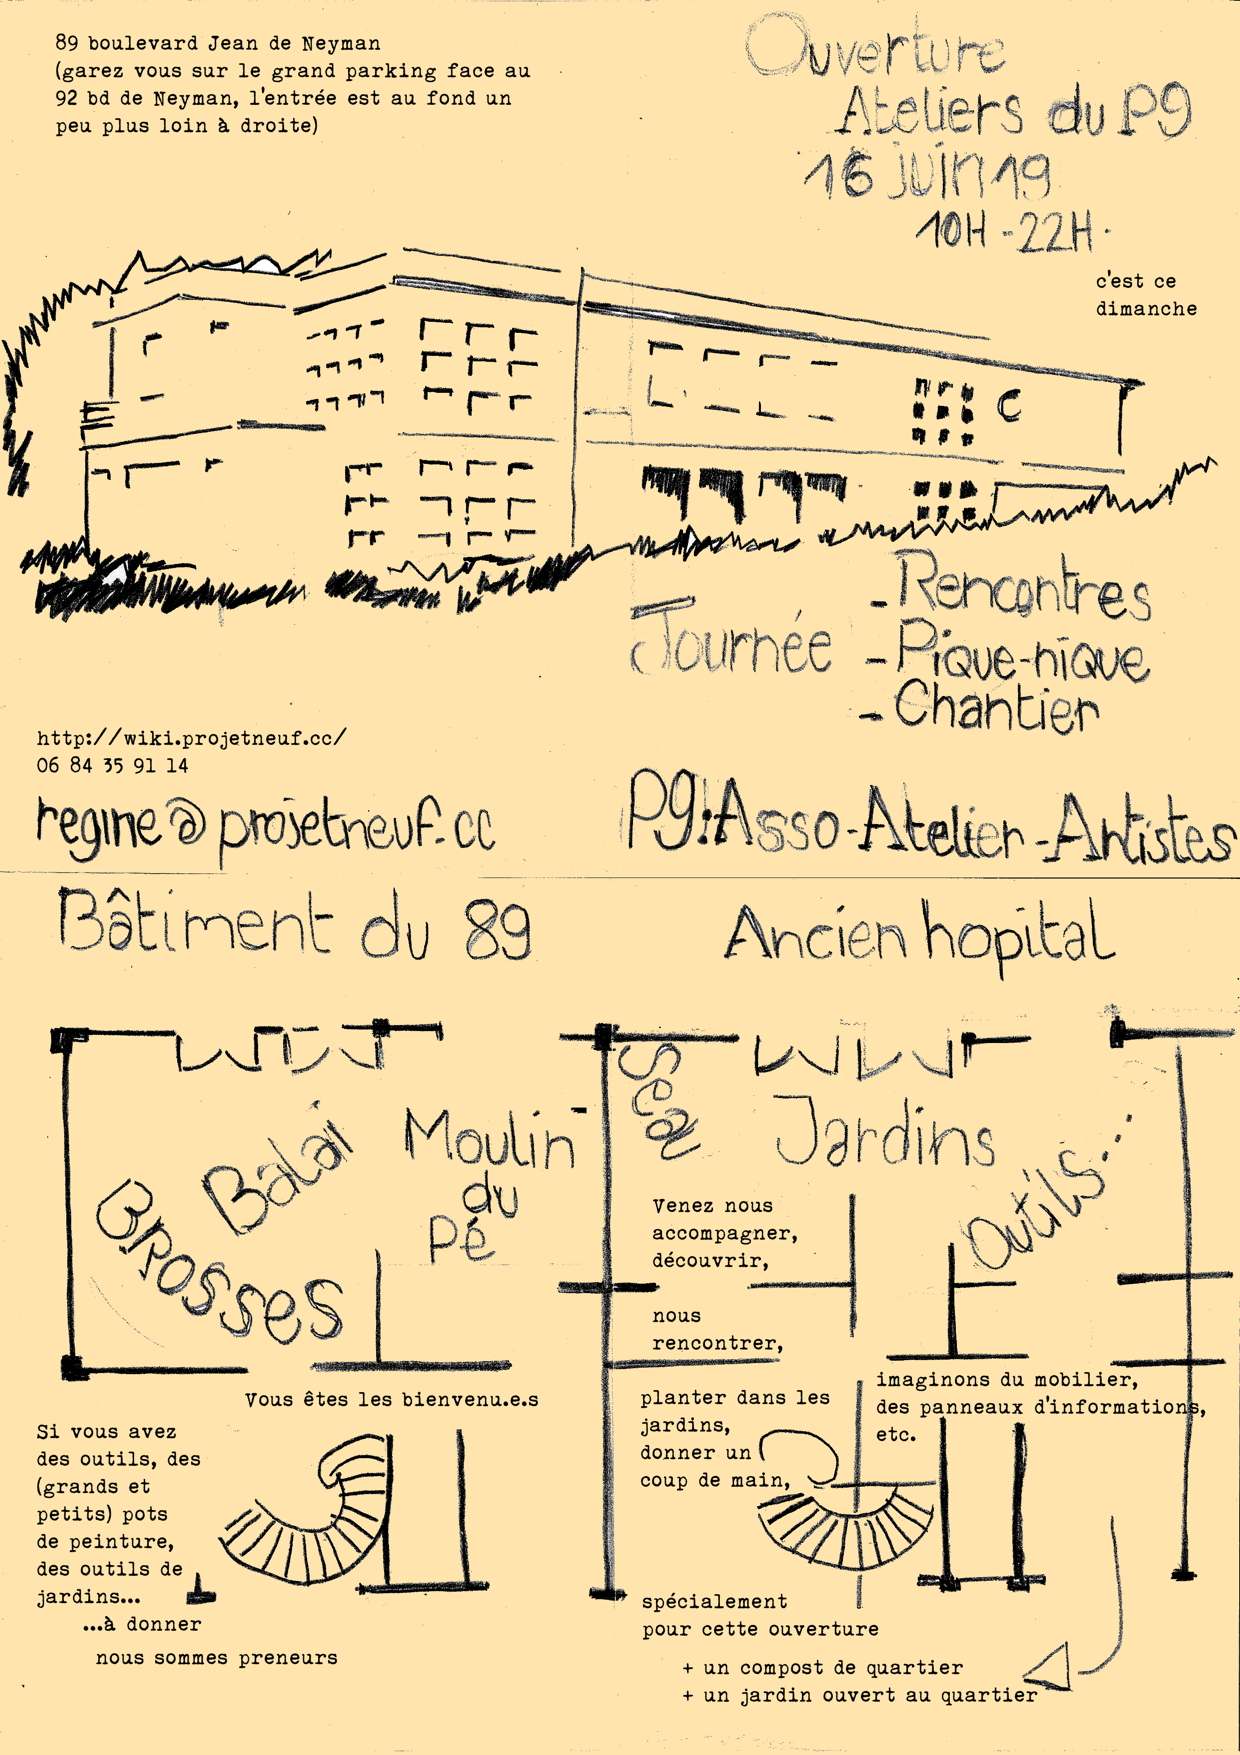 89 boulevard Jean de Neyman
(garez vous sur le grand parking face au
92 bd de Neyman, l'entrée est au fond un
peu plus loin à droite)
Ouverture
Ateliers du P9
16 juin 19
10H -22H.
c'est ce
dimanche
Journée
- Rencontres
- Pique-nique
- Chantier
http://wiki.projetneuf.cc/
06 84 35 91 14
regine@projetneuf.cc
P9:Asso-Atelier-Artistes
Bâtiment du 89
Ancien hopital
Brosses
Balai
Moulin
du
Pé
Seau
Jardins
Outils...
Venez nous
accompagner,
découvrir,
nous
rencontrer,
planter dans les
jardins,
donner un
coup de main,
imaginons du mobilier,
des panneaux d'informations,
etc.
Vous êtes les bienvenu.e.s
Si vous avez
des outils, des
(grands et
petits) pots
de peinture,
des outils de
jardins...
...à donner
nous sommes preneurs
spécialement
pour cette ouverture
+ un compost de quartier
+ un jardin ouvert au quartier